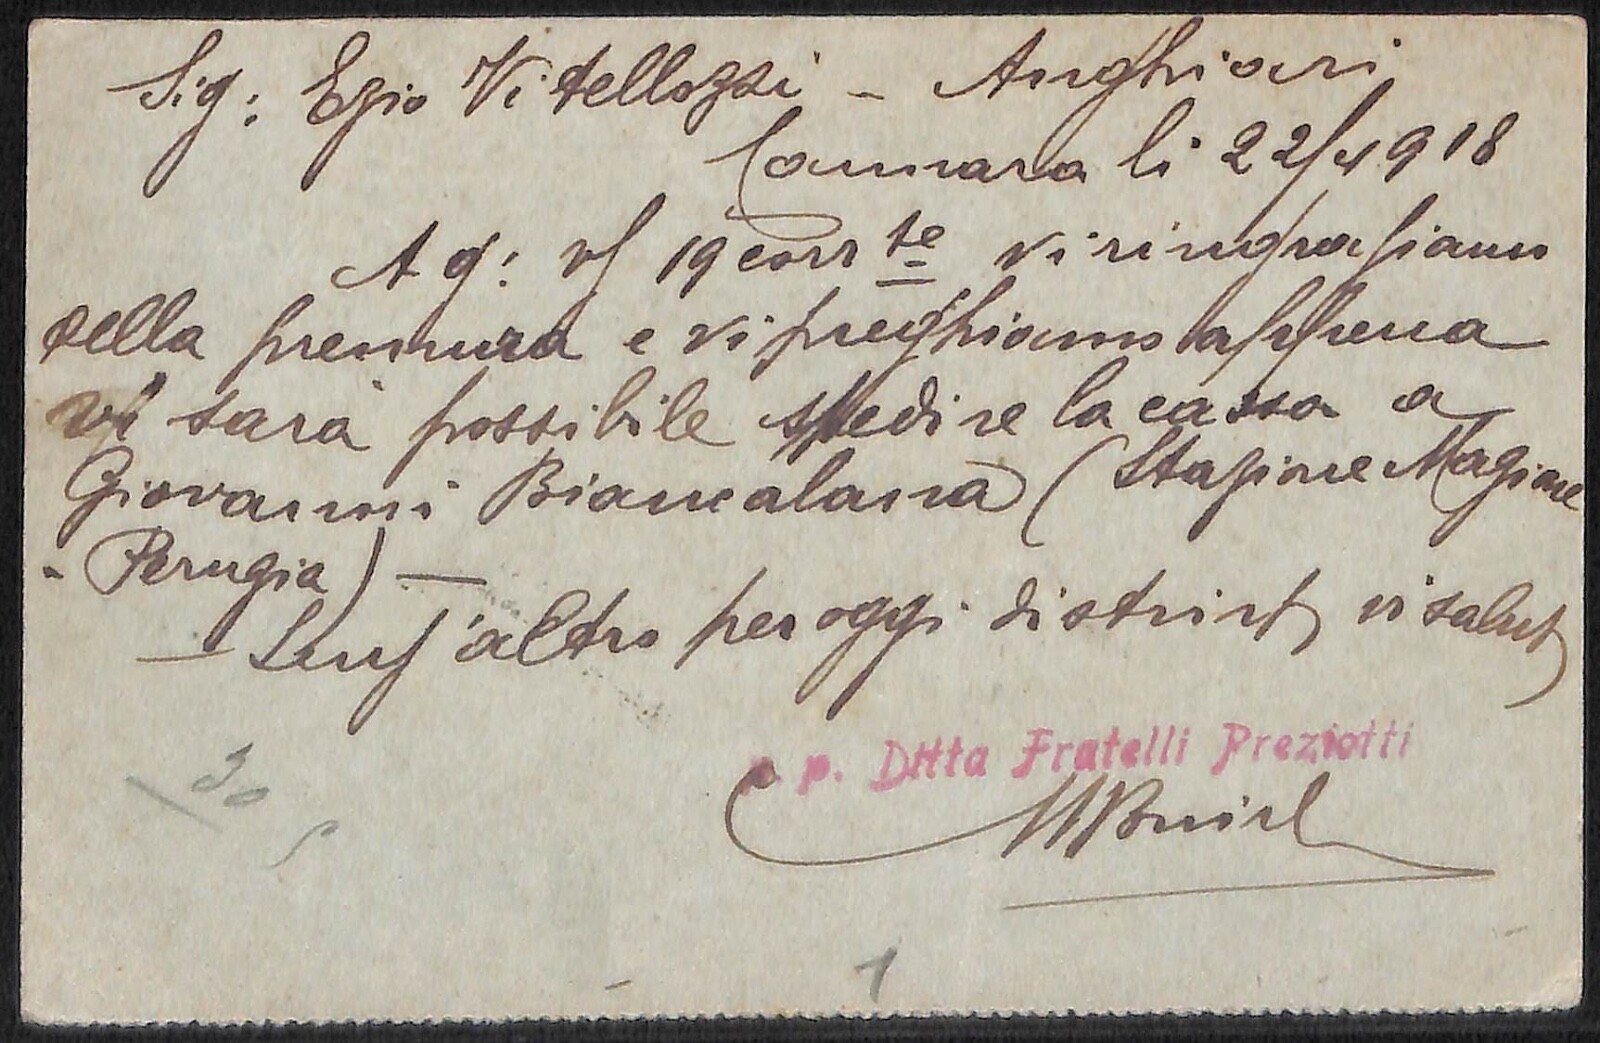 Sig: Ezio Vitellozzi - Anghiari
Cannara li 22/4 918
A g: v/ 19 corr te vi ringraziamo
della premura e vi preghiamo appena
vi sarà possibile spedire la cassa a
Giovanni Biancalana (Stazione Magione
- Perugia) —
— Senz'altro per oggi distint vi salut
p. Ditta Fratelli Preziotti
30
1